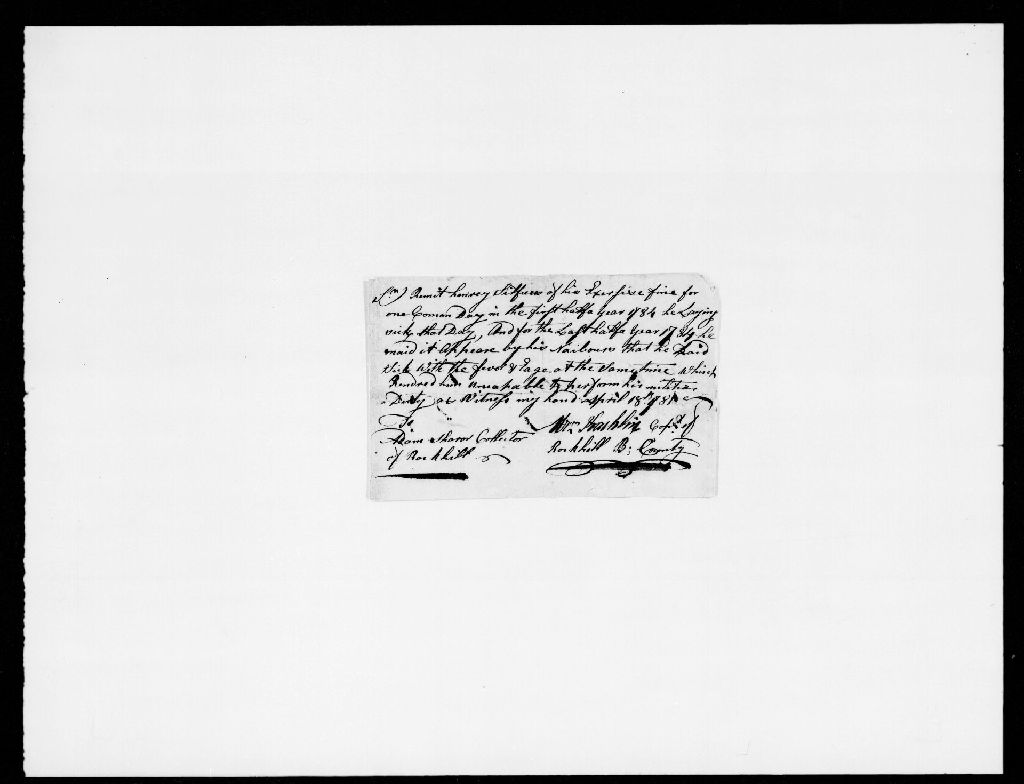 Remit henrey of his Exersise fine for
one Coman Day in the first halfe year 1784 he Laying
sick that Day, And for the Last halfe year 1784 he
maid it Appeare by his Naibours that he Laid
Sick with the fever & Eage at the same time which
Rendred him uncapable to perform his
Duty as Witness my hand April 18th
To
Adam Sharar Collector
of Rockhill
Wm Hashlin Capt. of
Rockhill B: County